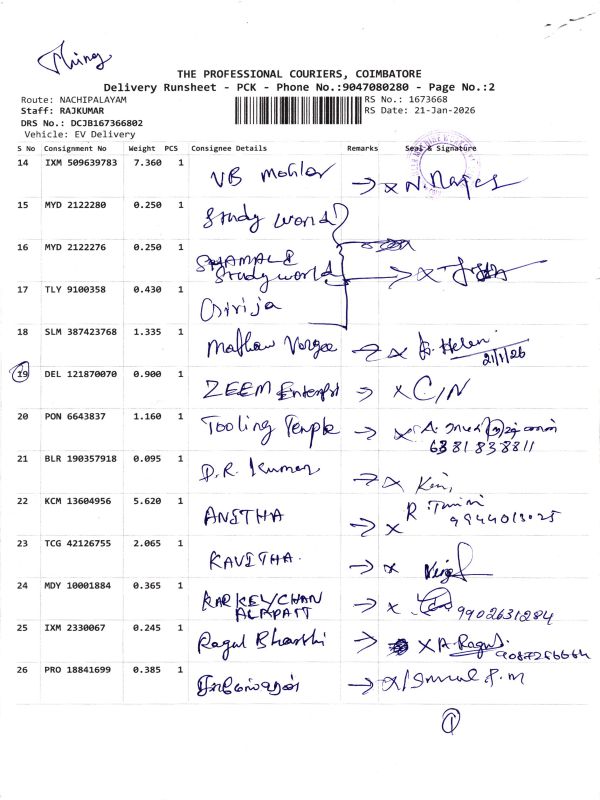 THE PROFESSIONAL COURIERS, COIMBATORE
Delivery Runsheet - PCK - Phone No.:9047080280 - Page No.:2
Route: NACHIPALAYAM RS No.: 1673668
Staff: RAJKUMAR RS Date: 21-Jan-2026
DRS No.: DCJB167366802
Vehicle: EV Delivery
S No Consignment No Weight PCS Consignee Details Remarks Seal & Signature
14 IXM 509639783 7.360 1 VB
15 MYD 2122280 0.250 1 Study world
16 MYD 2122276 0.250 1 Study world
17 TLY 9100358 0.430 1 Girija
18 SLM 387423768 1.335 1 Helen
21/1/26
19 DEL 121870070 0.900 1 ZEEM C/N
20 PON 6643837 1.160 1 Tooling Temple
6381838811
21 BLR 190357918 0.095 1 D.R. Kumar
22 KCM 13604956 5.620 1 ANITHA
23 TCG 42126755 2.065 1 KAVITHA
24 MDY 10001884 0.365 1
9902631284
25 IXM 2330067 0.245 1 Ragul Bharthi A. Ragul
26 PRO 18841699 0.385 1
1